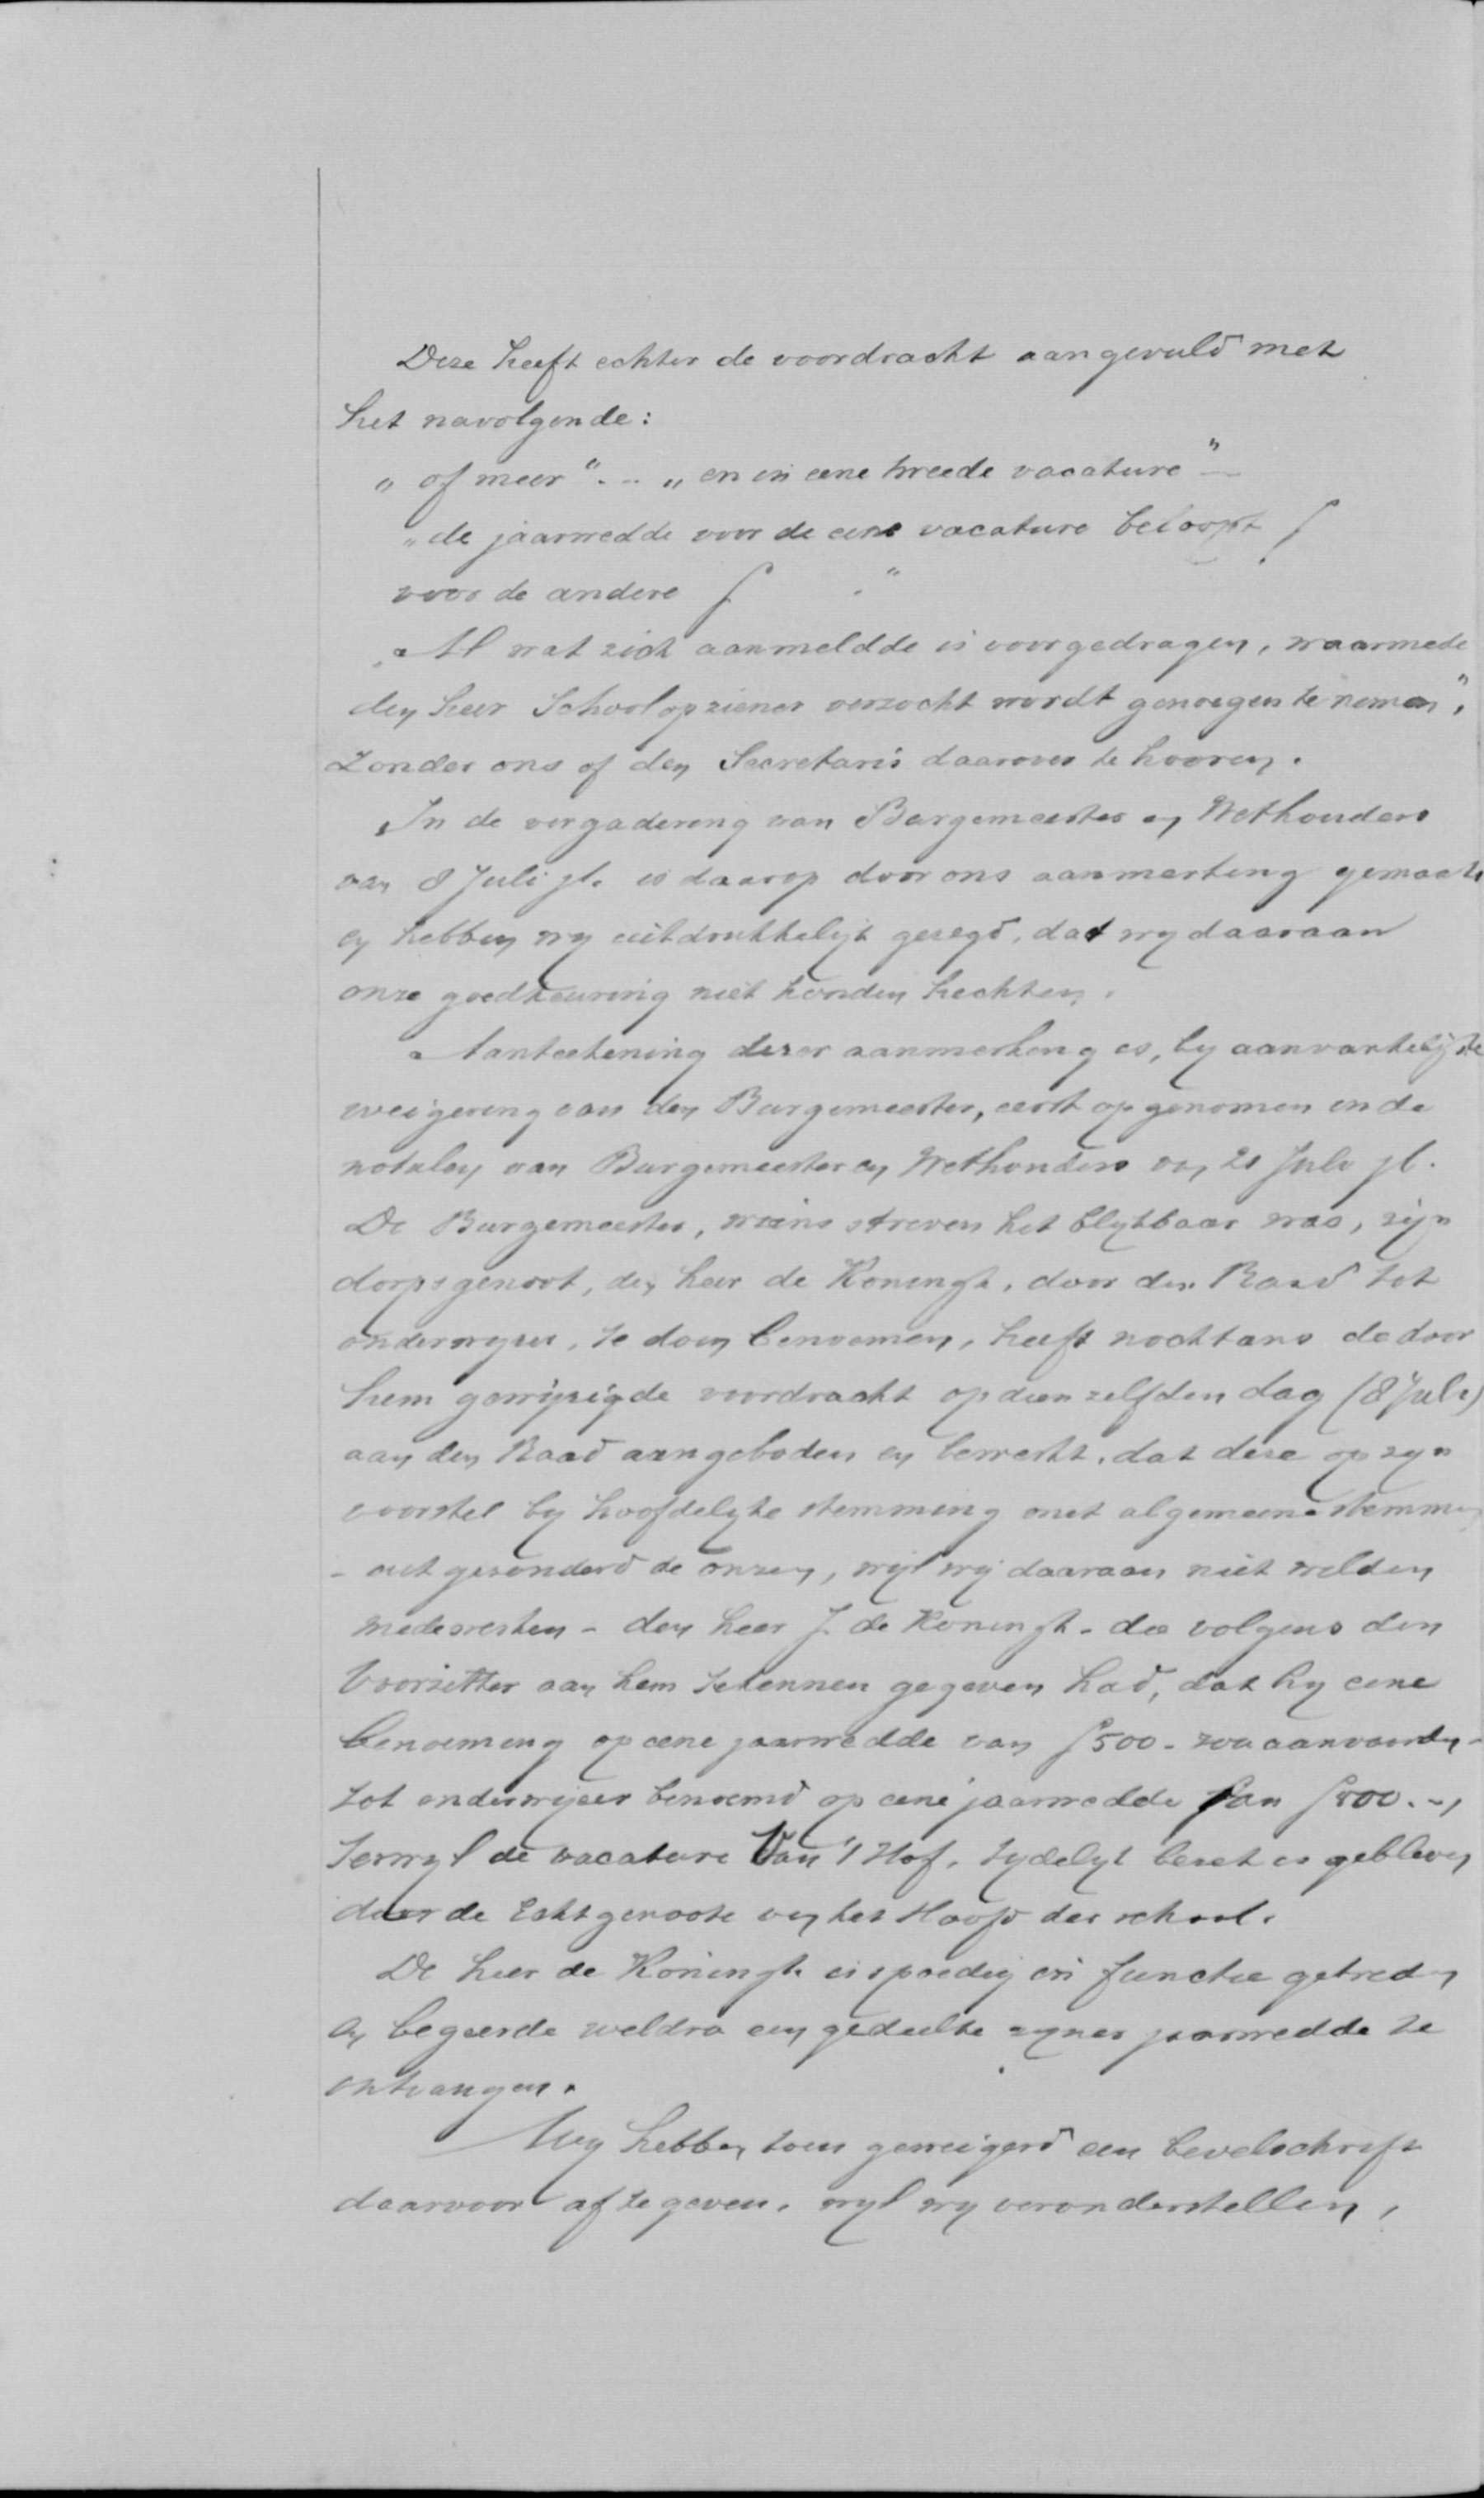 Deze heeft echter de voordracht aangevuld met
het navolgende:
„ of meer “ . .. „ en in eene tweede vacature “ –
„ de jaarwedde voor de eene vacature beloopt ƒ
voor de andere ƒ “
„ Al wat zich aanmeldde is voorgedragen, waarmede
den heer Schoolopziener verzocht wordt genoegen te nemen “,
zonder ons of den Secretaris daarover te hooren.
In de vergadering van Burgemeester en Wethouders
van 8 Juli jl. is daarop door ons aanmerking gemaakt
en hebben wy uitdrukkelyk gezegd, dat wy daaraan
onze goedkeuring niet konden hechten.
Aanteekening dezer aanmerking is, by aanvankelijke
weigering van den Burgemeester, eerst opgenomen in de
notulen van Burgemeester en Wethouders van 21 Juli jl.
De Burgemeester, wiens streven het blykbaar was, zijn
dorpsgenoot, den heer de Koningh, door den Raad tot
onderwyzer, te doen benoemen, heeft nochtans de door
hem gewijzigde voordracht op dienzelfden dag (8 Juli)
aan den Raad aangeboden en bewerkt, dat deze op zyn
voorstel by hoofdelyke stemming met algemeene stemmen
– uitgezonderd de onzen, wyl wij daaraan niet wilden
medewerken – den heer J. de Koningh – die volgens den
Voorzitter aan hem te kennen gegeven had, dat hy eene
benoeming op eene jaarwedde van ƒ 500 – zou aanvaarden –
tot onderwijzer benoemd op eene jaarwedde van ƒ 500.–,
terwyl de vacature Van 't Hof, tydelyk bezet is gebleven
door de Echtgenoote van het Hoofd der school.
De heer de Koningh is spoedig in functie getreden
en begeerde weldra een gedeelte zyner jaarwedde te
ontvangen.
Wy hebben toen geweigerd een bevelschrift
daarvoor af te geven, wyl wy veronderstellen,